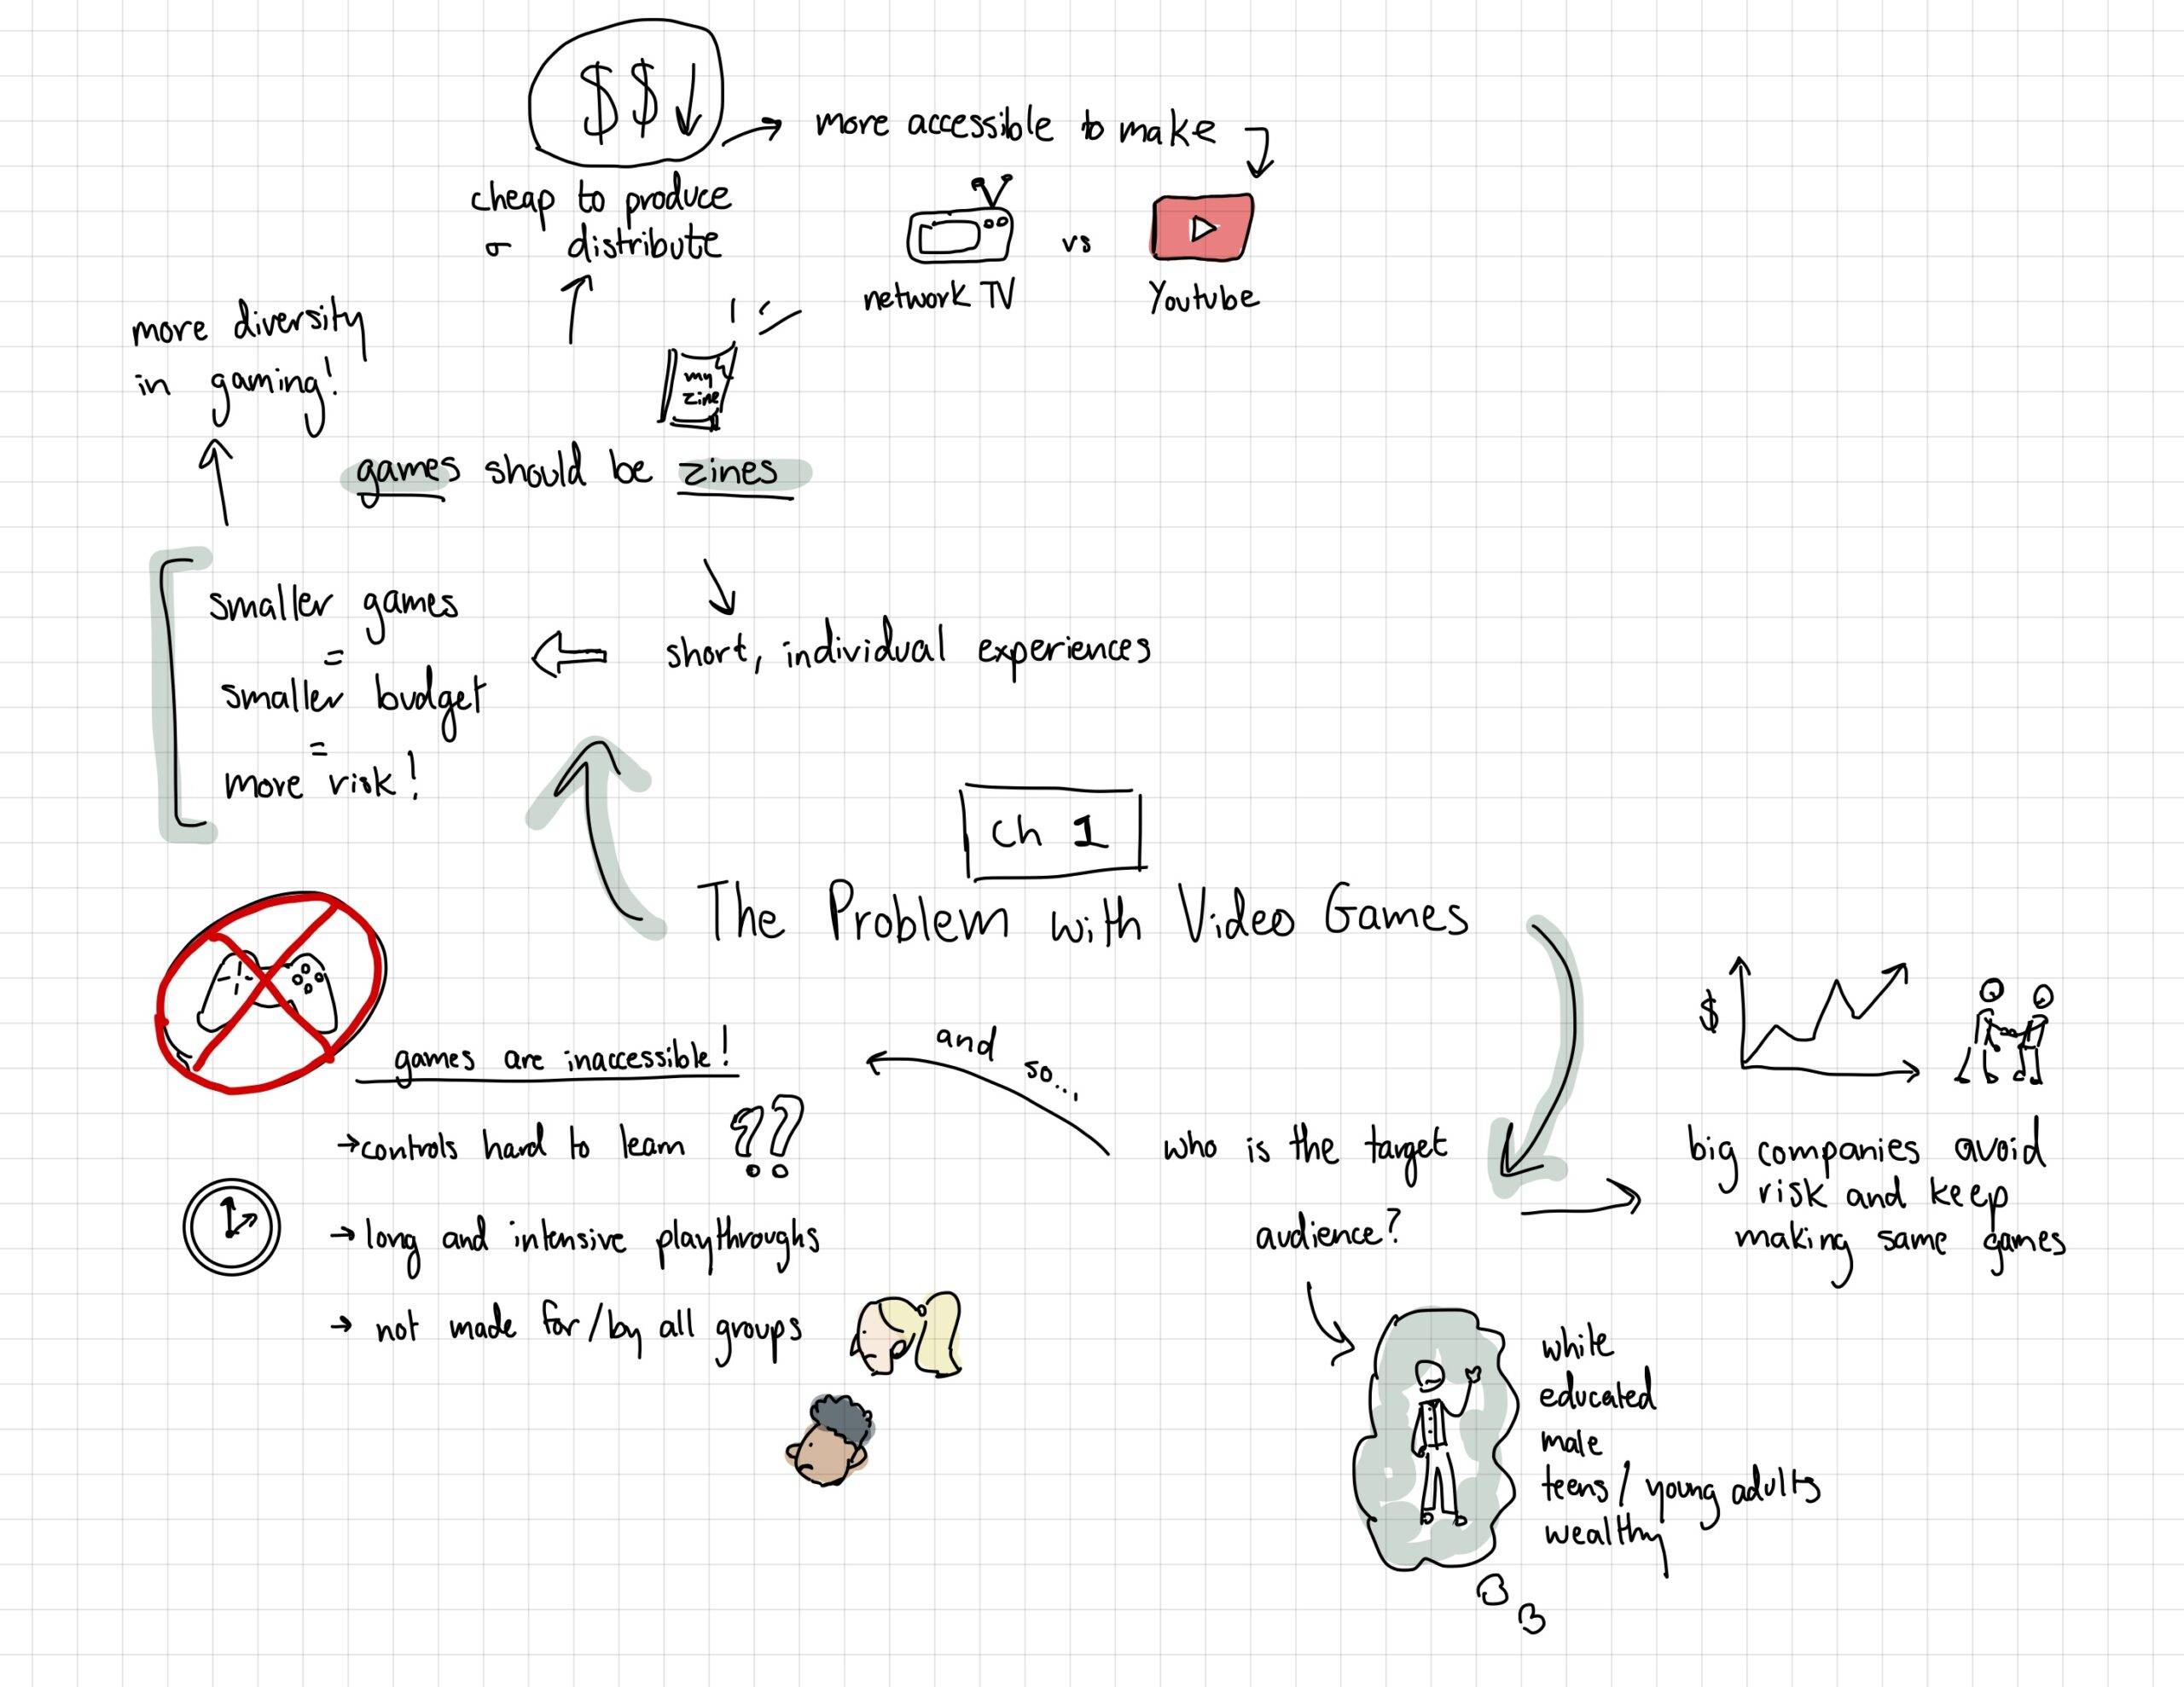 $$↓
more accessible to make
cheap to produce
& distribute
network TV
vs
Youtube
more diversity
in gaming!
my
zine
games should be zines
smaller games
=
smaller budget
=
more risk!
short, individual experiences
ch 1
The Problem with Video Games
games are inaccessible!
→controls hard to learn ??
→ long and intensive playthroughs
→ not made for/by all groups
and
so...
who is the target
audience?
$
big companies avoid
risk and keep
making same games
white
educated
male
teens/young adults
wealthy